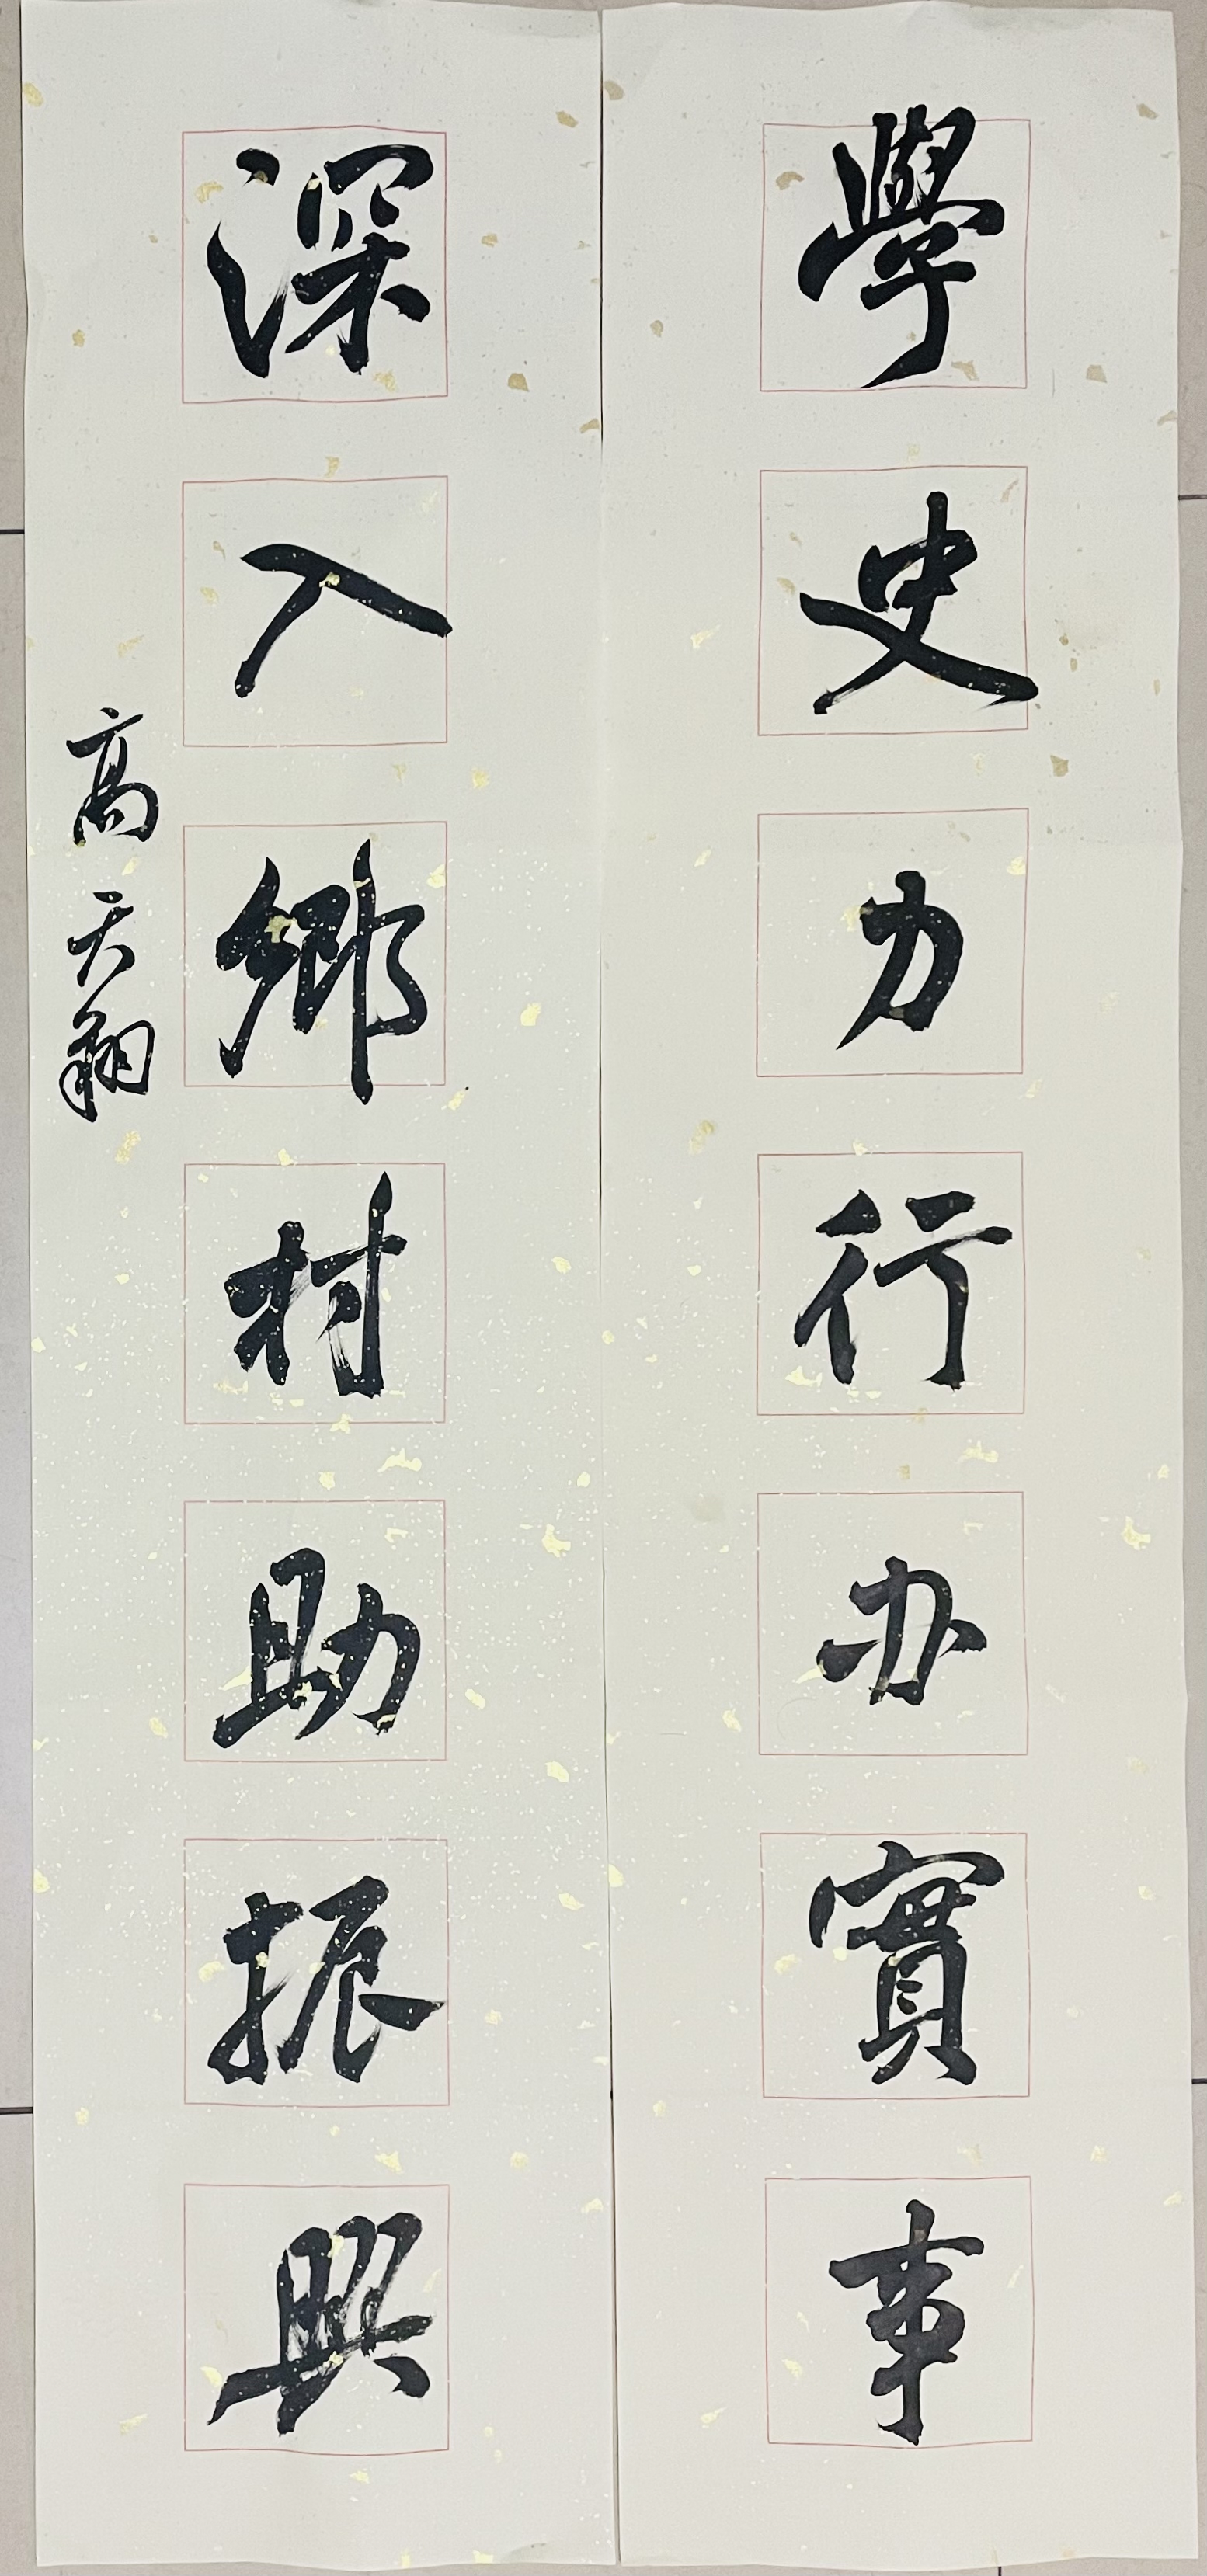 學史力行办實事
深入鄉村助振興
高天翔